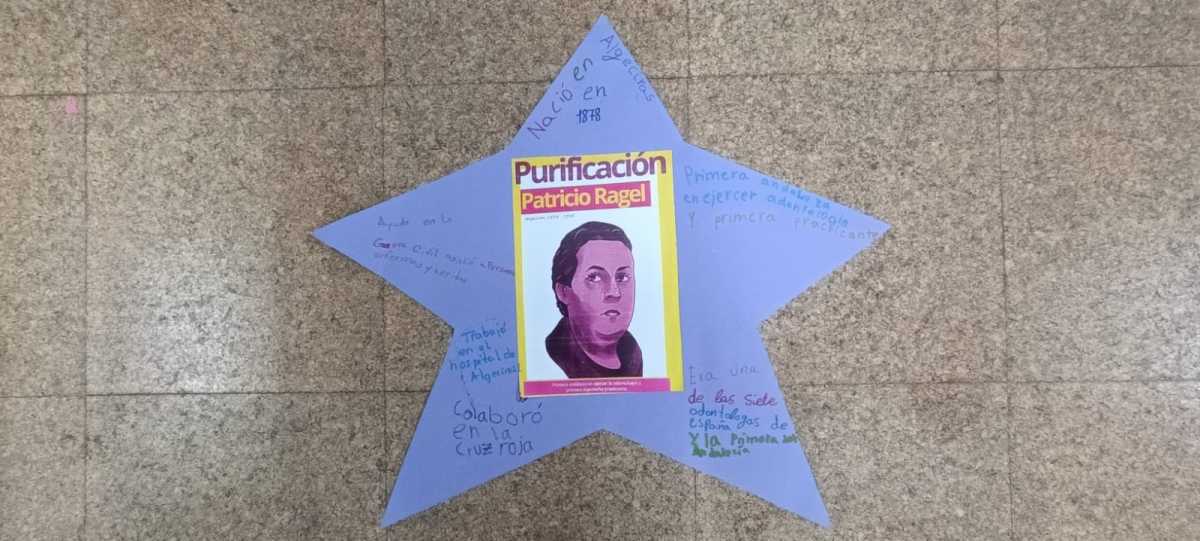 Nació en Algeciras
en
1878
Purificación
Patricio Ragel
Primera andaluza
en ejercer odontología
Y primera practicante
Ayudó en la
Guerra Civil asistió a Personas
enfermas y heridas
Trabajó
en el
hospital de
Algeciras
Colaboró
en la
Cruz roja
Era una
de las siete
odontólogas
españa de
Y la Primera
Andalucía
Primera andaluza en ejercer la odontología y
primera española practicante